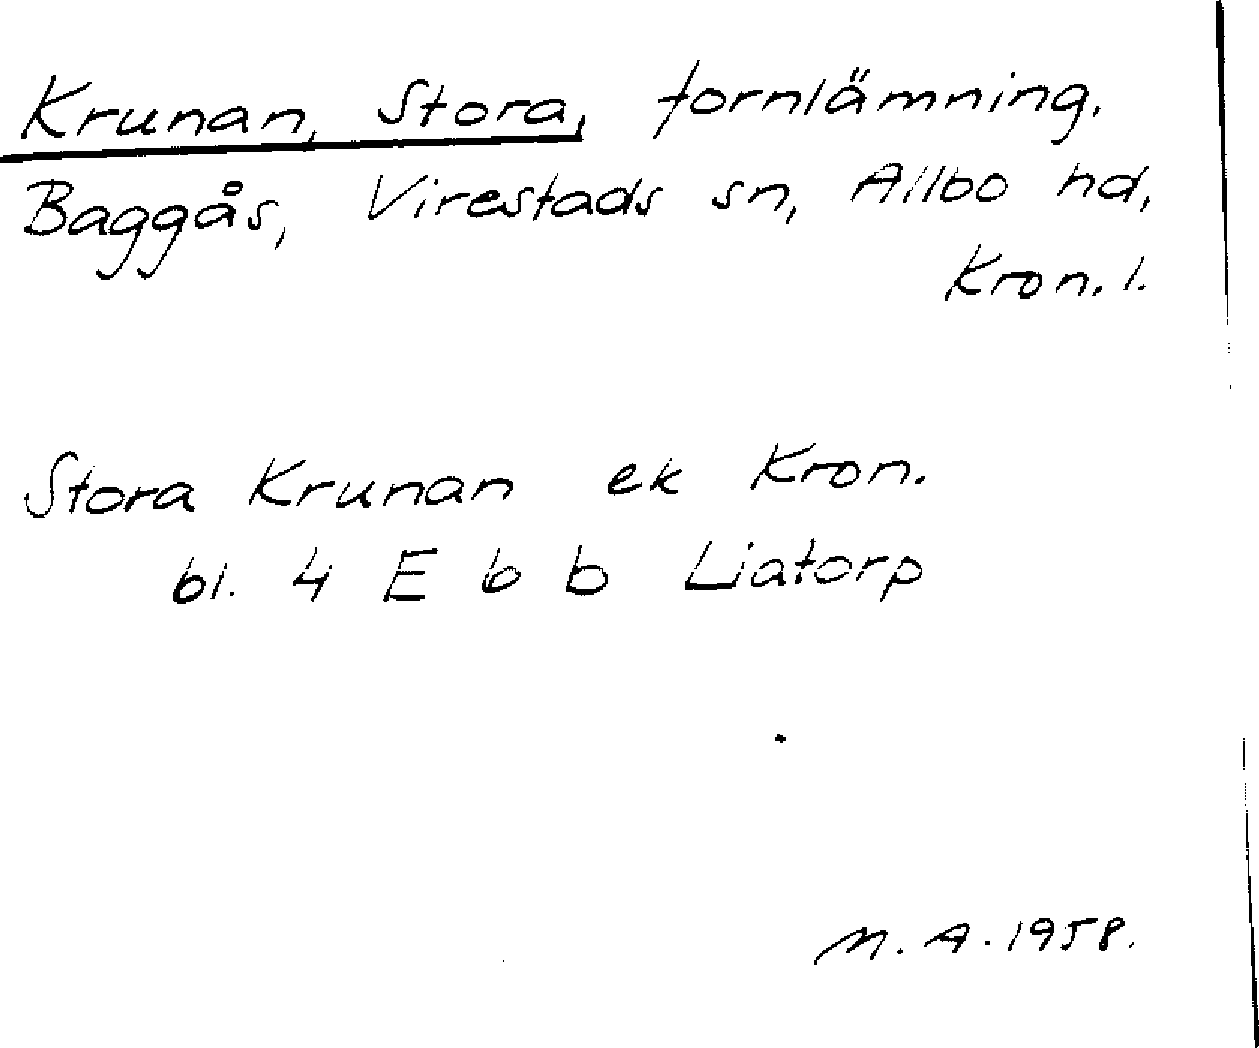 Krunan, Stora, fornlämning.
Baggås, Virestads sn, Allbo hd,
Kron. l.
Stora Krunan ek Kron.
bl. 4 E 6 b Liatorp
M. A. 1958.